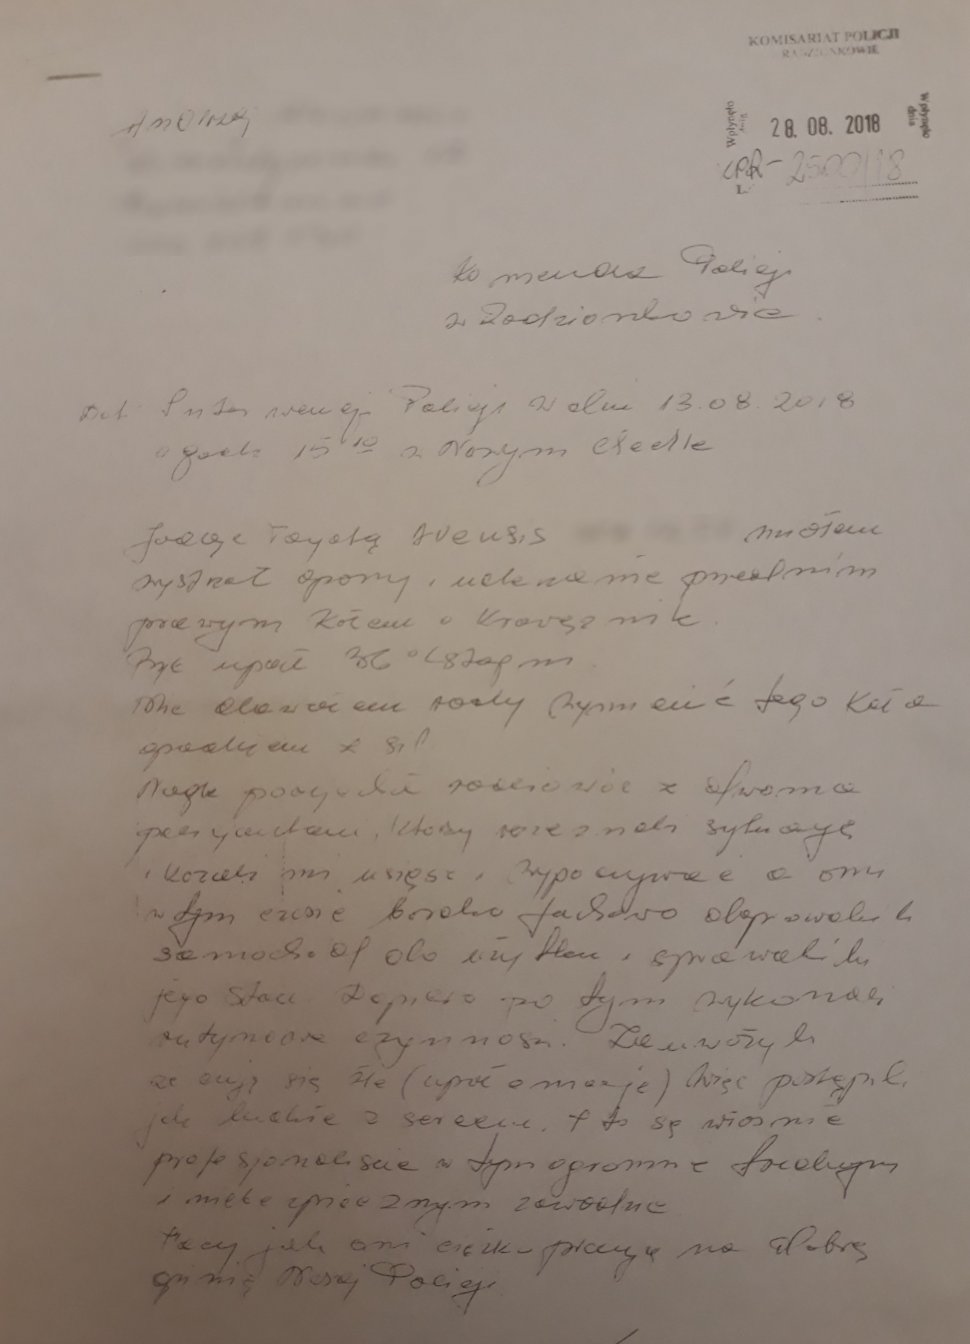 KOMISARIAT POLICJI
RADZIONKOWIE
Wpłynęło dnia
28. 08. 2018
Wpłynęło dnia
L.
2500/18
Andrzej
Komenda Policji
w Radzionkowie
Dot. Interwencji Policji w dniu 13.08.2018
o godz 15 10 w Nowym Chechle
Jadąc Toyotą Avensis miałem
wystrzał opony i uderzenie przednim
prawym kołem o krawężnik.
Był upał 36° Cstopni.
Nie dawałem rady wymienić tego koła
opadłem z sił
Nagle podjechał radiowóz z dwoma
policjantami, którzy rozeznali sytuację
i kazali mi usiąść i wypoczywać a oni
w tym czasie bardzo fachowo doprowadzili
samochód do użytku i sprawdzili
jego stan. Dopiero po tym wykonali
rutynowe czynności. Zauważyli
że czuję się źle (upał emocje) więc postąpili
jak ludzie z sercem. I to są właśnie
profesjonaliści w tym ogromnie trudnym
i niebezpiecznym zawodzie
Tacy jak oni ciężko pracują na dobrą
opinię Naszej Policji